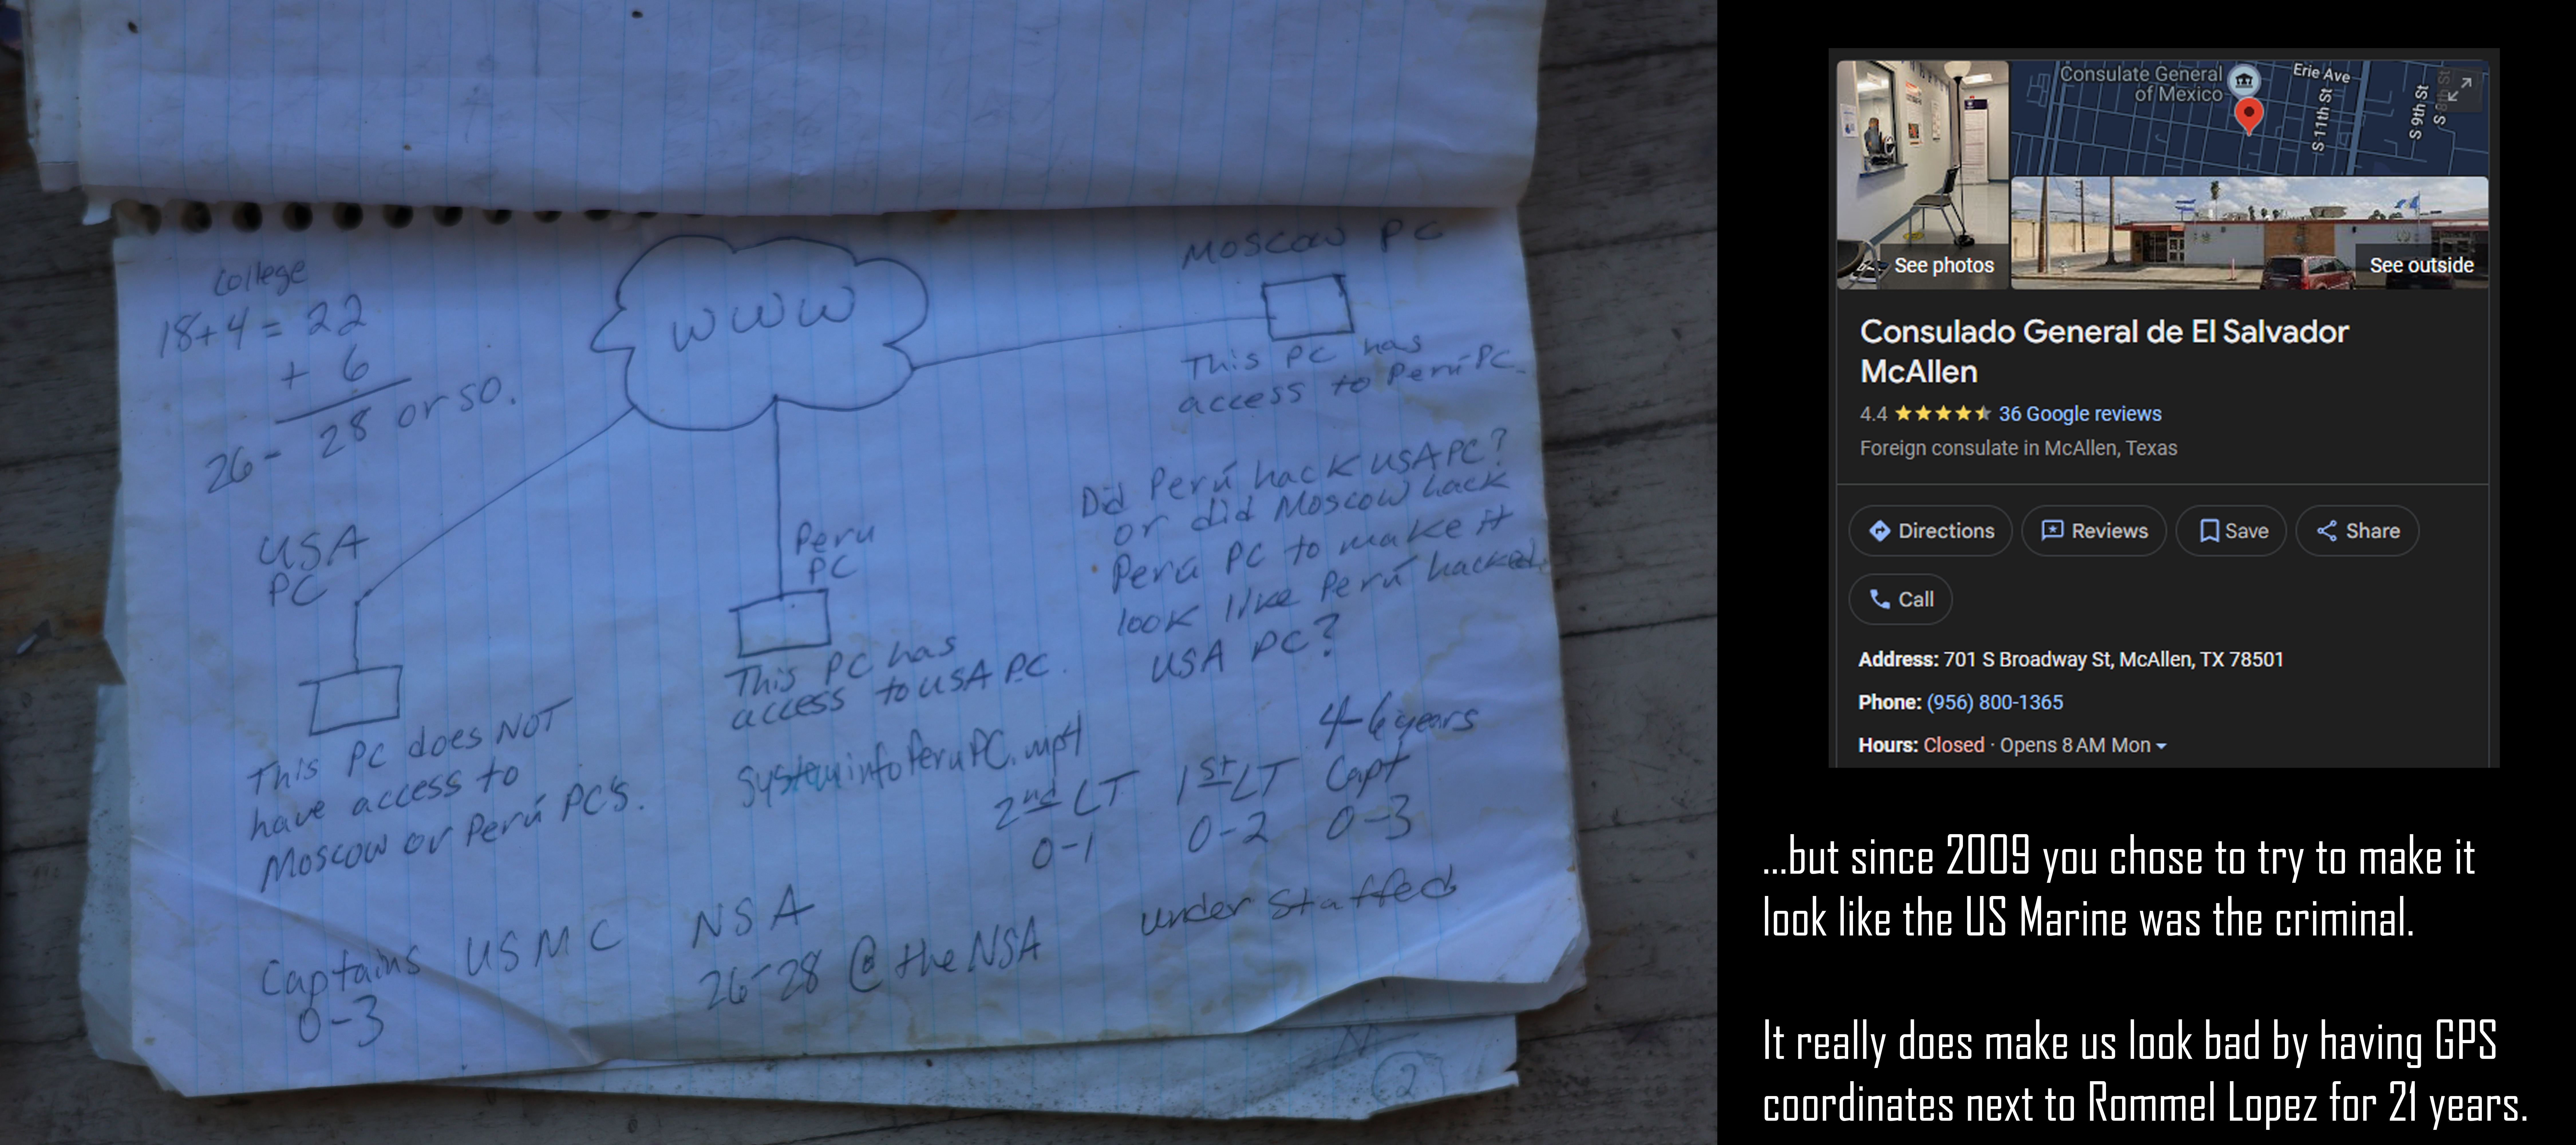 College
18+4=22
+ 6
26- 28 or so.
WWW
Moscow PC
This PC has
access to Perú PC.
USA
PC
This PC does NOT
have access to
Moscow or Perú PC's.
Peru
PC
This PC has
access to USA PC.
SysteminfoPeruPC.mp4
Did Perú hack USA PC?
or did Moscow hack
Perú PC to make it
look like Perú hacked
USA PC?
4-6 years
2nd LT 1st LT Capt
0-1 0-2 0-3
Captains USMC NSA
0-3
26-28 @ the NSA
under staffed
2
Consulate General
of Mexico
Erie Ave
S 11th St
S 9th St
S 8th St
See photos
See outside
Consulado General de El Salvador
McAllen
4.4 36 Google reviews
Foreign consulate in McAllen, Texas
Directions Reviews Save Share
Call
Address: 701 S Broadway St, McAllen, TX 78501
Phone: (956) 800-1365
Hours: Closed · Opens 8 AM Mon
...but since 2009 you chose to try to make it
look like the US Marine was the criminal.
It really does make us look bad by having GPS
coordinates next to Rommel Lopez for 21 years.